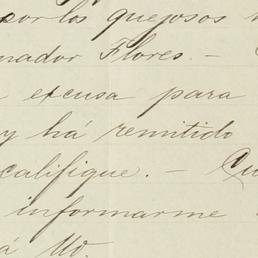 por los quejosos
nador Flores. -
excusa para
y há remitido
califique. -
informarme
á Ud.